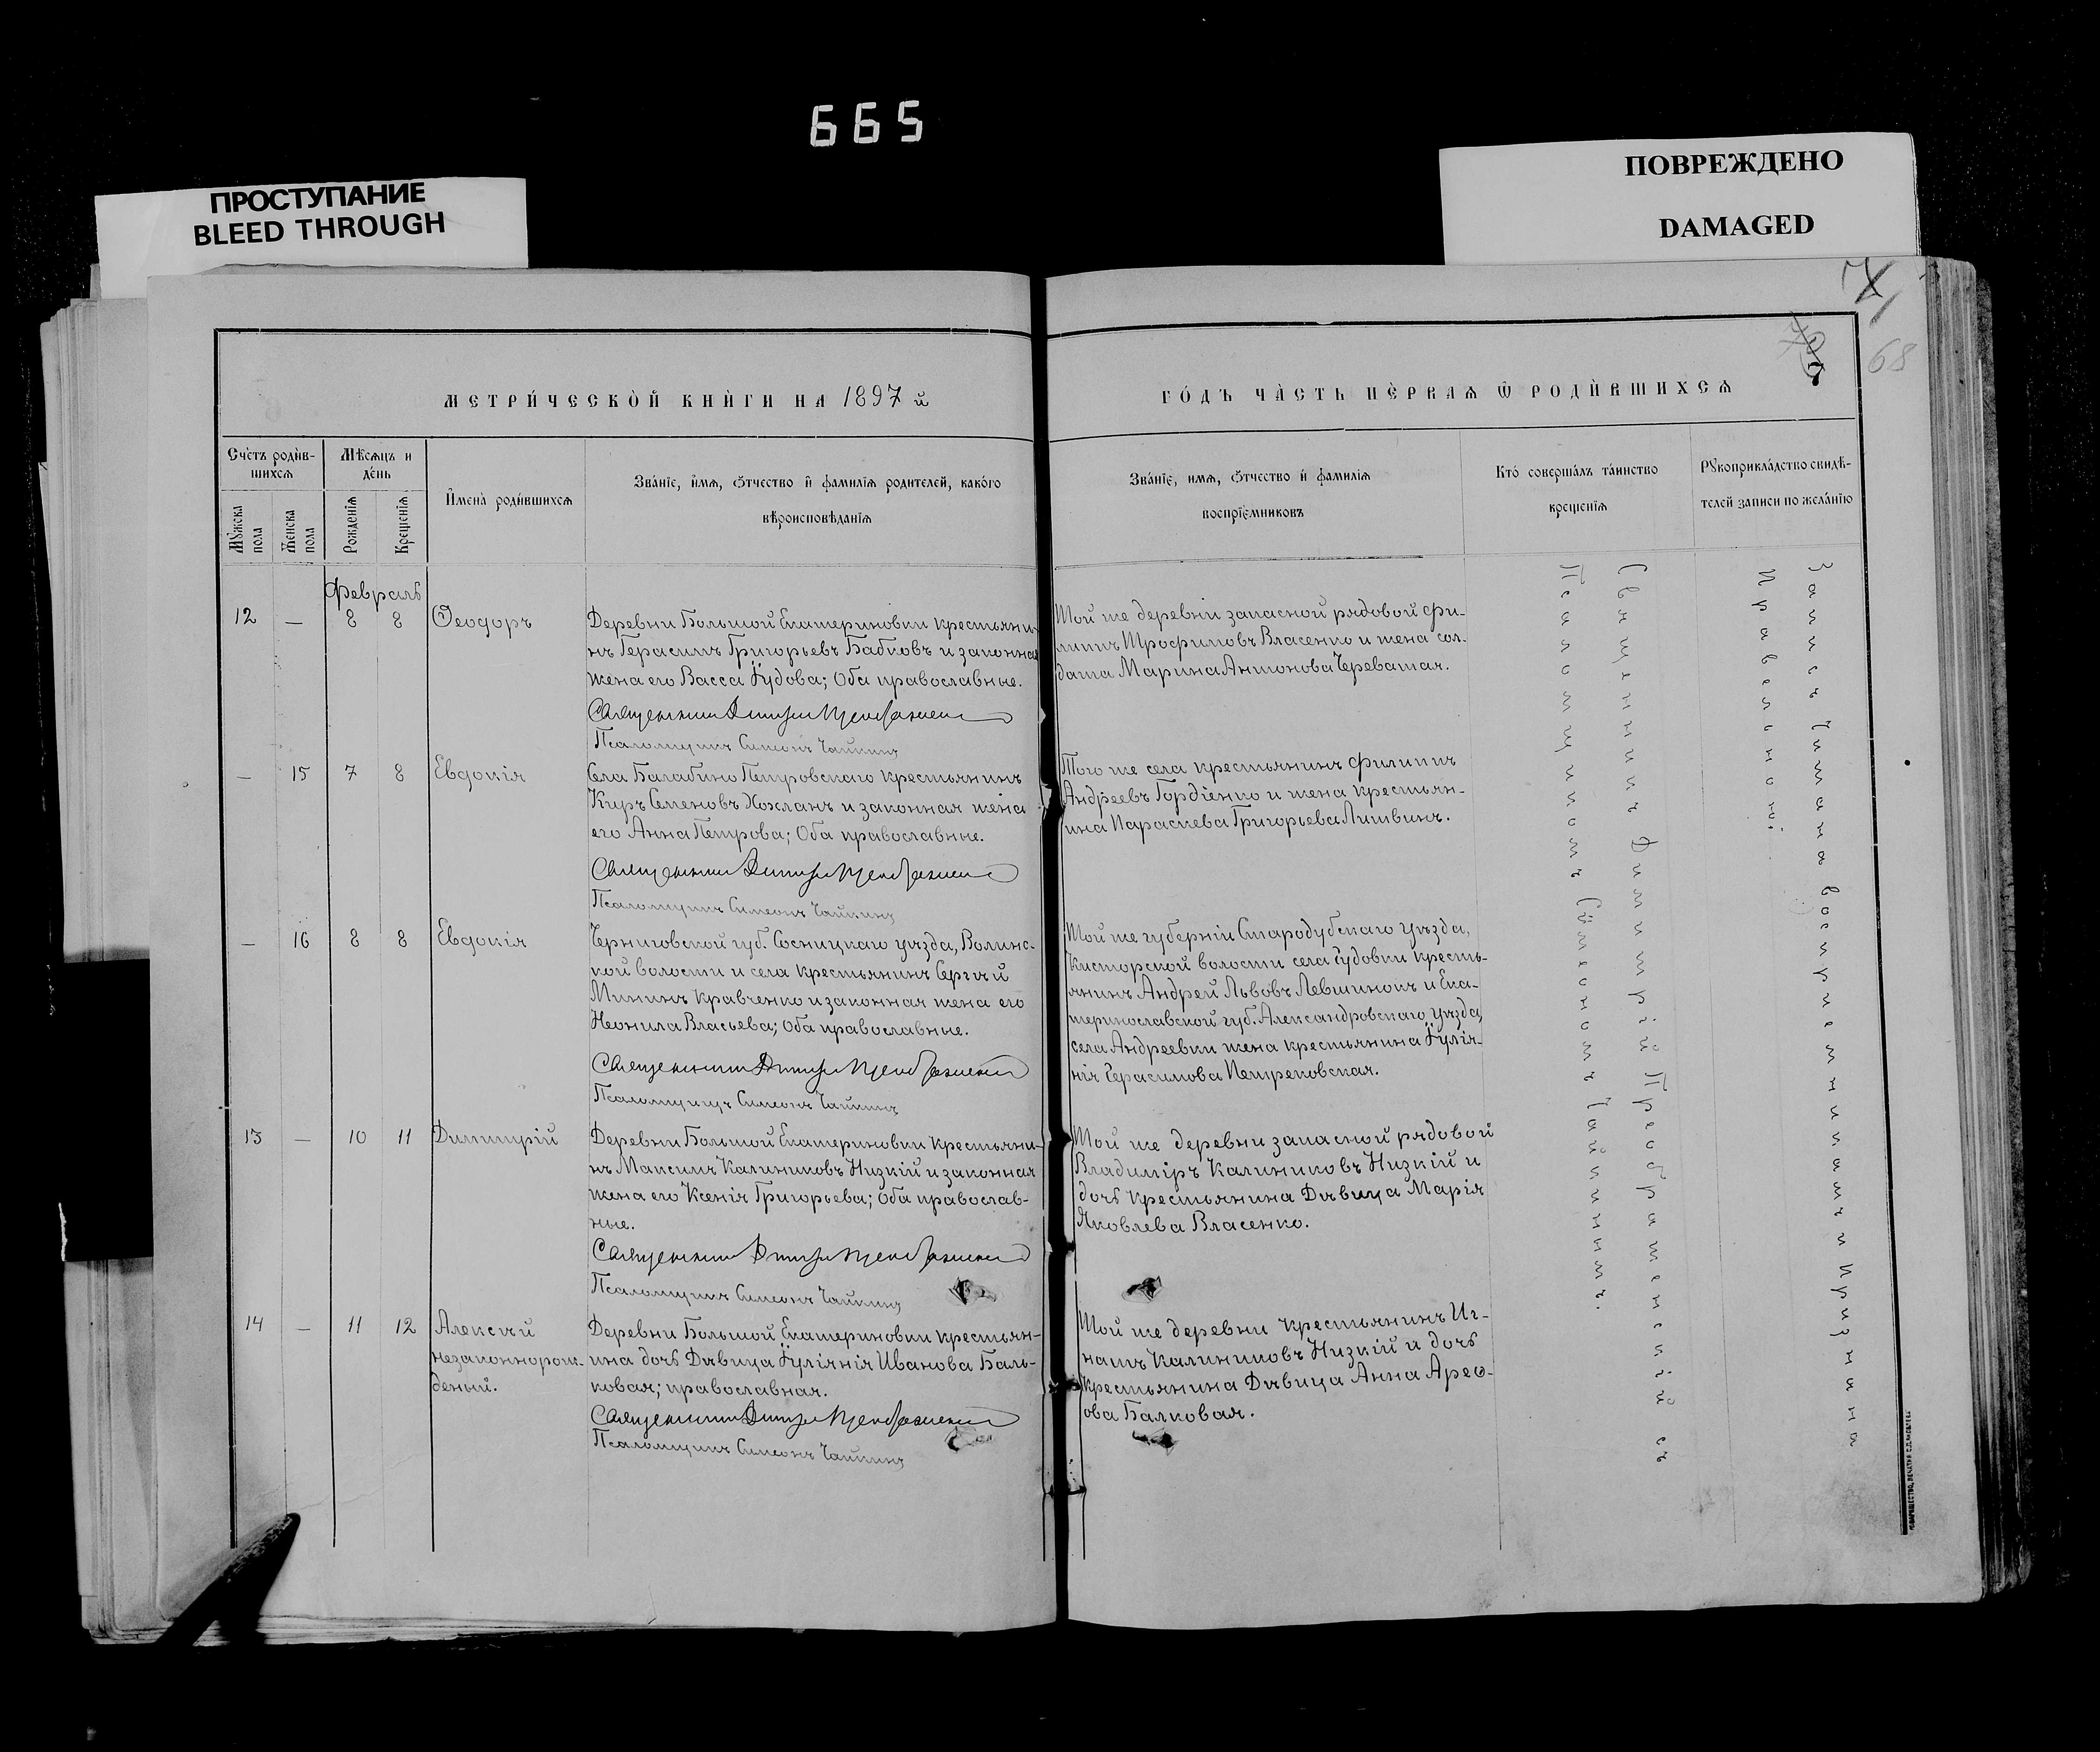 665
ПРОСТУПАНИЕ
BLEED THROUGH
ПОВРЕЖДЕНО
DAMAGED
68
МЕТРИ́ЧЕСКОЙ КНИ́ГИ НА 1897 й
ГО́ДЪ ЧА́СТЬ ПЕ́РВАѦ Ѿ РОДИ́ВШИХСѦ
Сче́тъ роди́в-
шихсѧ
Мꙋ́жска
пола
Же́нска
пола
Мѣ́сѧцъ и
де́нь
Рожденїѧ
Крещенїѧ
И҆мена̀ роди́вшихсѧ
Зва́нїе, и҆́мѧ, ѻ҆́тчество и҆ фамилїѧ родителей, како́го
вѣроисповѣ́данїѧ
Зва́нїе, имѧ, ѻ҆́тчество и҆ фамилїѧ
воспрїе́мниковъ
Кто̀ соверша́лъ та́инство
крещенїѧ
Рꙋкоприкла́дство свидѣ́-
телей записи по жела́нїю
Февраль
12 — 8 8 Ѳеодоръ
Деревни Большой Екатериновки крестьяни-
нъ Герасимъ Григорьевъ Бабковъ и законная
жена его Васса Іудова; Оба православные.
Священникъ Димитрій Преображенскій
Псаломщикъ Симеонъ Чайкинъ
Той же деревни запасной рядовой Фи-
липпъ Трофимовъ Власенко и жена сол-
дата Марина Антонова Череватая.
— 15 7 8 Евдокія
Села Балабино Петровскаго крестьянинъ
Киръ Семеновъ Хохланъ и законная жена
его Анна Петрова; Оба православные.
Священникъ Димитрій Преображенскій
Псаломщикъ Симеонъ Чайкинъ
Того же села крестьянинъ Филиппъ
Андреевъ Гордіенко и жена крестьян-
ина Параскева Григорьева Литвинъ.
— 16 8 8 Евдокія
Черниговской губ. Сосницкаго уѣзда, Волинс-
кой волости и села крестьянинъ Сергѣй
Мининъ Кравченко и законная жена его
Неонила Власьева; Оба православные.
Священникъ Димитрій Преображенскій
Псаломщикъ Симеонъ Чайкинъ
Той же губерніи Стародубскаго уѣзда,
Кисторской волости села Гудовки кресть-
янинъ Андрей Львовъ Левшинокъ и Ека-
теринославской губ. Александровскаго уѣзда,
села Андреевки жена крестьянина Іулія-
нія Герасимова Петреновская.
13 — 10 11 Димитрій
Деревни Большой Екатериновки крестьяни-
нъ Максимъ Калиниковъ Низкій и законная
жена его Ксенія Григорьева; Оба православ-
ные.
Священникъ Димитрій Преображенскій
Псаломщикъ Симеонъ Чайкинъ
Той же деревни запасной рядовой
Владиміръ Калиниковъ Низкій и
дочь крестьянина Дѣвица Марія
Яковлева Власенко.
14 — 11 12 Алексѣй
незаконнорож-
деный.
Деревни Большой Екатериновки крестьян-
ина дочь Дѣвица Іуліянія Иванова Баль-
ковая; православная.
Священникъ Димитрій Преображенскій
Псаломщикъ Симеонъ Чайкинъ
Той же деревни крестьянинъ Иг-
натъ Калиниковъ Низкій и дочь
крестьянина Дѣвица Анна Ареѳ-
ова Балковая.
Священникъ Димитрій Преображенскій съ
Псаломщикомъ Симеономъ Чайкинымъ.
Запись читана воспріемникамъ и признана
правельной.